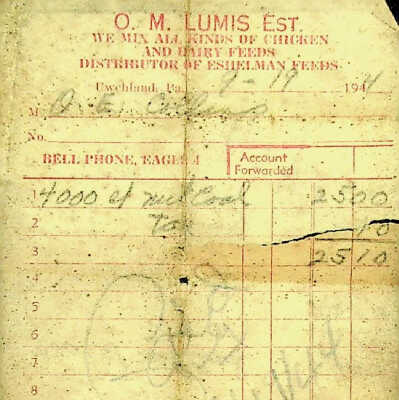 O. M. LUMIS EST.
WE MIX ALL KINDS OF CHICKEN
AND DAIRY FEEDS
DISTRIBUTOR OF ESHELMAN FEEDS
Uwchland, Pa. 9-19 1944
M O. E.
No.
BELL PHONE, EAGLE 4 Account Forwarded
1 4000 of nut Coal 2500
2 Tax 10
3 2510
4
5
6
7
8